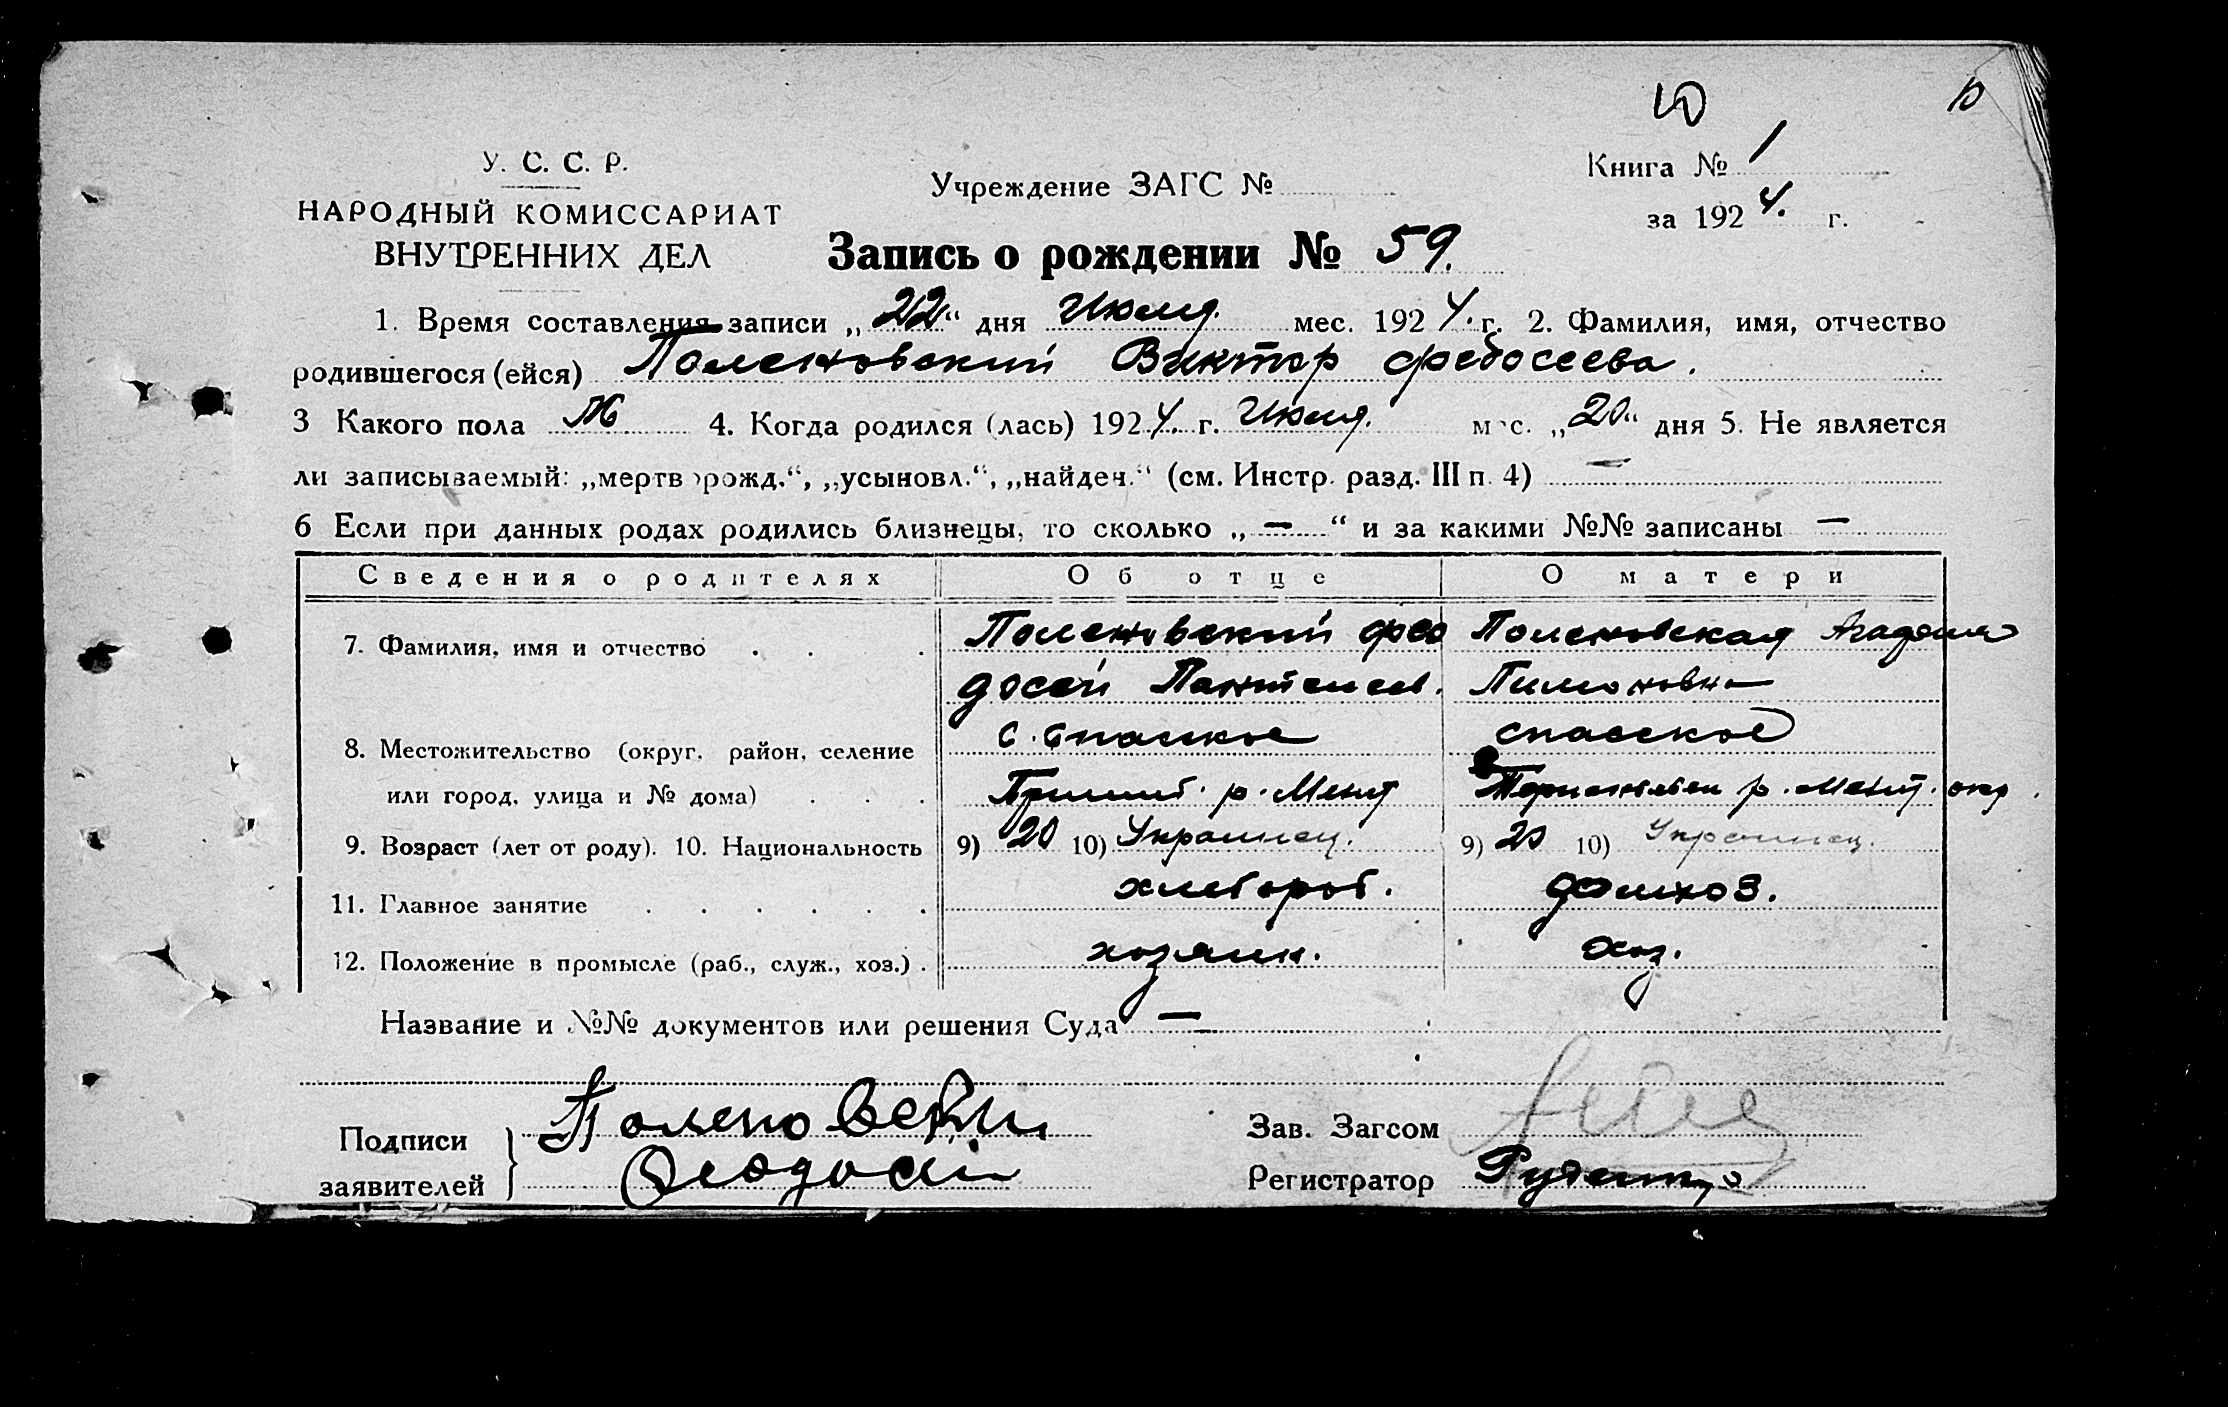 10
10
У. С. С. Р.
НАРОДНЫЙ КОМИССАРИАТ
ВНУТРЕННИХ ДЕЛ
Учреждение ЗАГС №
Книга № 1
за 1924. г.
Запись о рождении № 59.
1. Время составления записи „22“ дня Июля мес. 1924. г. 2. Фамилия, имя, отчество
родившегося (ейся) Поленовский Виктор Федосеева.
3 Какого пола М 4. Когда родился (лась) 1924. г. Июля. мес. „20“ дня 5. Не является
ли записываемый: „мертворожд.“, „усыновл.“, „найден.“ (см. Инстр. разд. III п. 4) —
6 Если при данных родах родились близнецы, то сколько „—“ и за какими №№ записаны —
Сведения о родителях Об отце О матери
7. Фамилия, имя и отчество . . . Поленовский Фео Поленовская
досей Пантелеев. Пимоновна
8. Местожительство (округ, район, селение с. Спасское Спасское
или город, улица и № дома) . . . р. Мелит р. Мелит. окр.
9. Возраст (лет от роду). 10. Национальность 9) 20 10) Украинец. 9) 20 10) Украинец.
11. Главное занятие . . . . . . хлебороб. домхоз.
12. Положение в промысле (раб., служ., хоз.) . хозяин. хоз.
Название и №№ документов или решения Суда —
Подписи
заявителей
Поленовский
Феодосий
Зав. Загсом
Регистратор Руденко